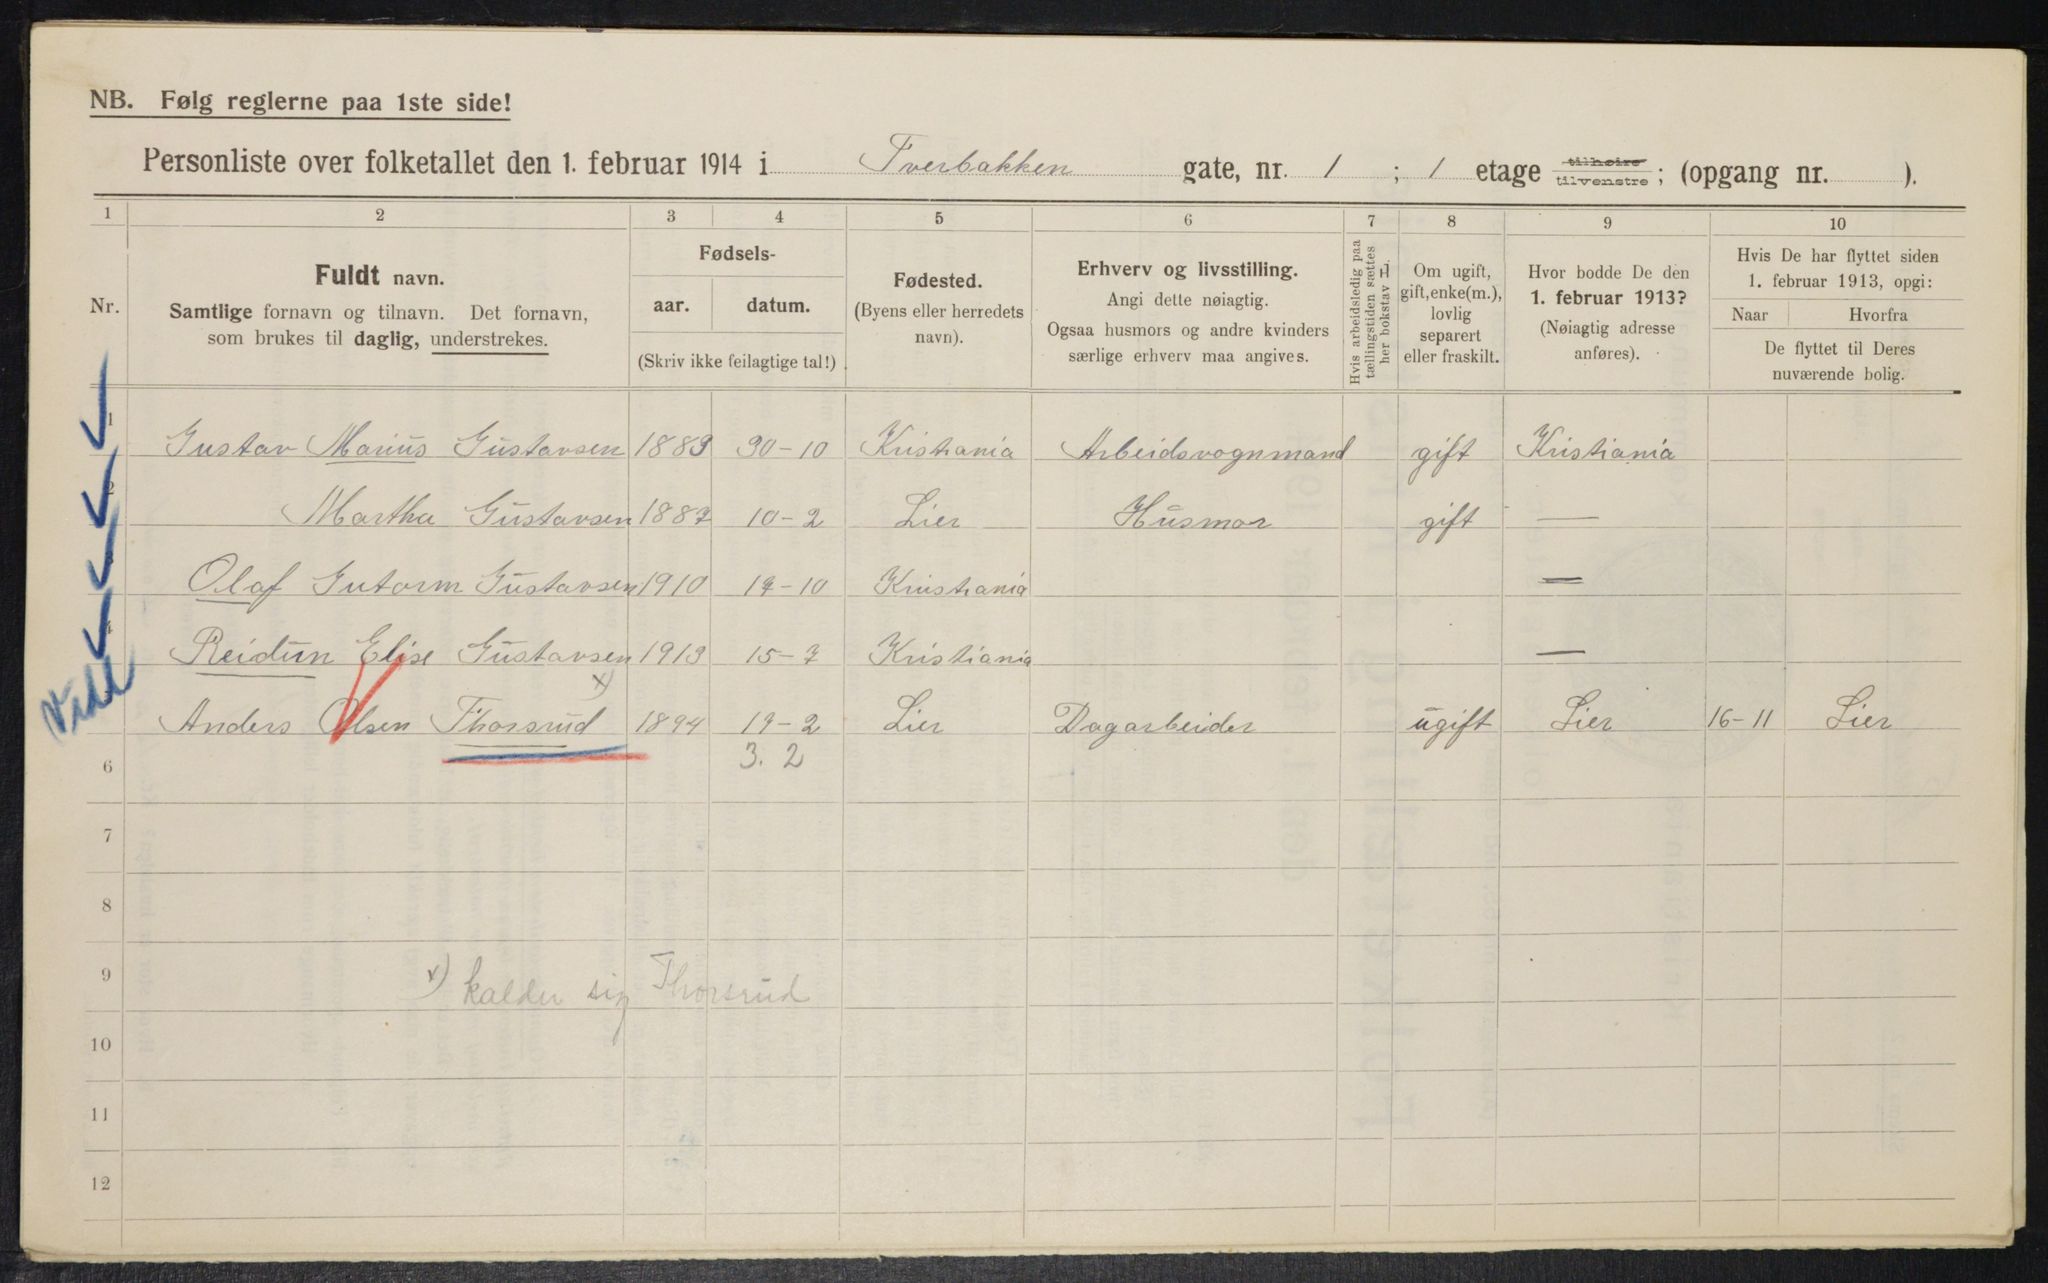 NB. Følg reglerne paa 1ste side!
Personliste over folketallet den 1. februar 1914 i Tverbakken gate, nr. 1 ; 1 etage tilhøire tilvenstre ; (opgang nr. ).
1 2 3 4 5 6 7 8 9 10
Nr.
Fuldt navn.
Samtlige fornavn og tilnavn. Det fornavn,
som brukes til daglig, understrekes.
Fødsels-
aar. datum.
(Skriv ikke feilagtige tal!)
Fødested.
(Byens eller herredets
navn).
Erhverv og livsstilling.
Angi dette nøiagtig.
Ogsaa husmors og andre kvinders
særlige erhverv maa angives.
Hvis arbeidsledig paa
tællingstiden sættes
her bokstav H.
Om ugift,
gift, enke(m.),
lovlig
separert
eller fraskilt.
Hvor bodde De den
1. februar 1913?
(Nøiagtig adresse
anføres).
Hvis De har flyttet siden
1. februar 1913, opgi:
Naar Hvorfra
De flyttet til Deres
nuværende bolig.
1 Gustav Marius Gustavsen 1889 30-10 Kristiania Arbeidsvognmand gift Kristiania
2 Martha Gustavsen 1887 10-2 Lier Husmor gift —
Olaf Gutorm Gustavsen 1910 17-10 Kristiania —
4 Reidun Elise Gustavsen 1913 15-7 Kristiania —
Anders Olsen Thorsrud x) 1894 19-2 Lier Dagarbeider ugift Lier 16-11 Lier
6 3. 2
7
8
9
x) kalder sig Thorsrud
10
11
12